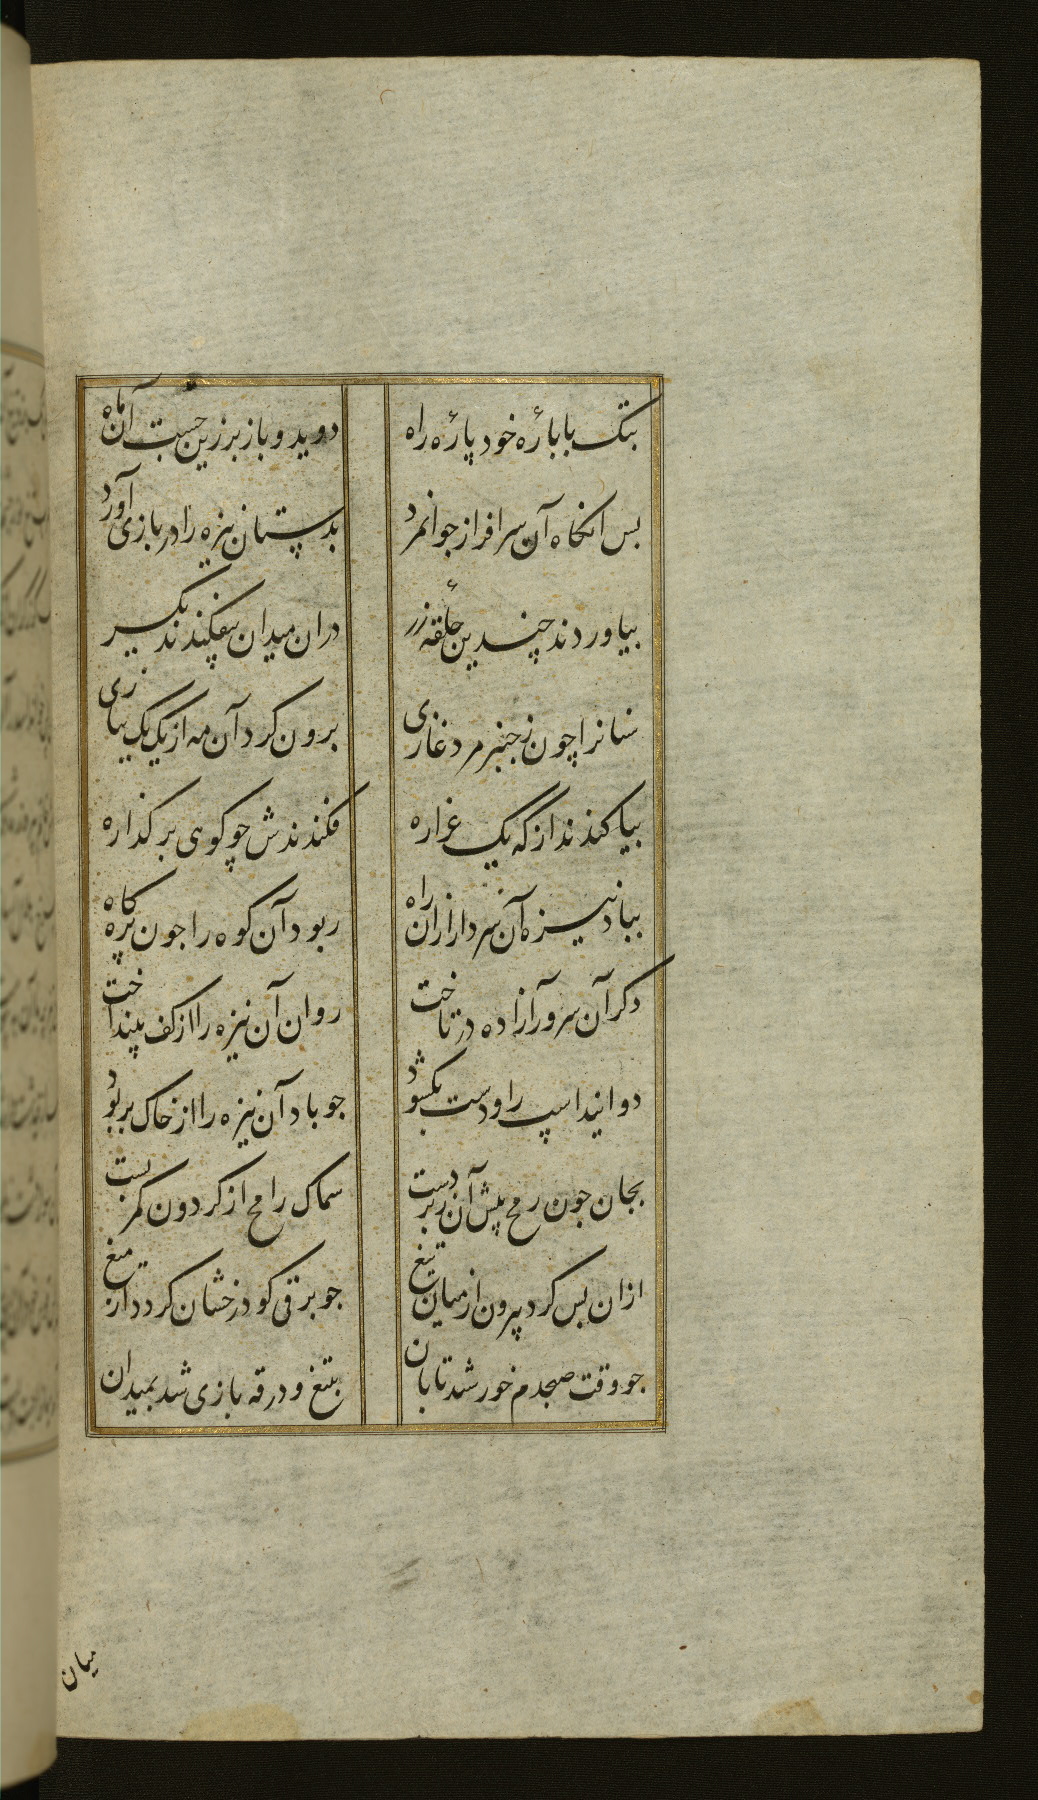 بتک با بارهٔ خود پارهٔ راه
دوید و باز بر زین جست آن ماه
بس انکاه آن سرافراز جوانمرد
بدستان نیزه را در بازی آورد
بیاوردند چندین حلقهٔ زر
دران میدان بیفکندند یکسر
سنانرا چون ز چنبر مرد غازی
برون کرد آن مه از یک یک ببازی
بیاکندند از که یک غراره
فکندندش چو کوی بر کذاره
بباد نیزه آن سردار ازان راه
ربود آن کوه را جون پرهٔ کاه
دکر آن سرور آزاده در تاخت
روان آن نیزه را از کف بینداخت
دوانید اسپ را و دست بکشود
جو باد آن نیزه را از خاک بربود
بجان جون رمح پیش آن زبردست
سماک رامح از کردون کمر بست
ازان بس کرد بیرون از میان تیغ
جو برقی کو درخشان کردد از میغ
جو وقت صبحدم خورشید تابان
بتیغ و درقه بازی شد بمیدان
میان